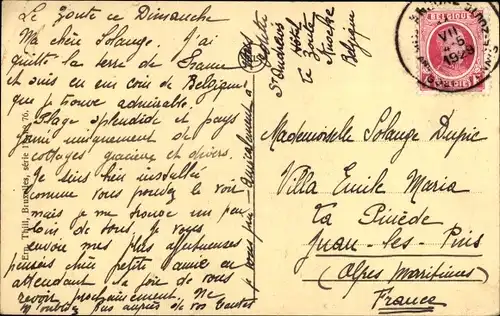 Le Zoute ce Dimanche
Ma chère Solange. J'ai
quitté la terre de France
et suis en un coin de Belgique
que je trouve admirable.
Plage splendide et pays
fourni uniquement de
cottages gracieux et divers.
Je suis bien installée
comme vous pouvez le voir
mais je me trouve un peu
loin de tous. Je vous
envoie mes plus affectueuses
pensées chère petite amie en
attendant la joie de vous
revoir prochainement. Ne
m'oubliez pas auprès de vos tantes
St Andrew's
Hôtel
Le Zoute
Knocke
Belgique
Ern. Thill, Bruxelles, série
BELGIQUE
VII
1928
Mademoiselle Solange Dupic
Villa Emile Maria
La Pinède
Juan-les-Pins
(Alpes Maritimes)
France